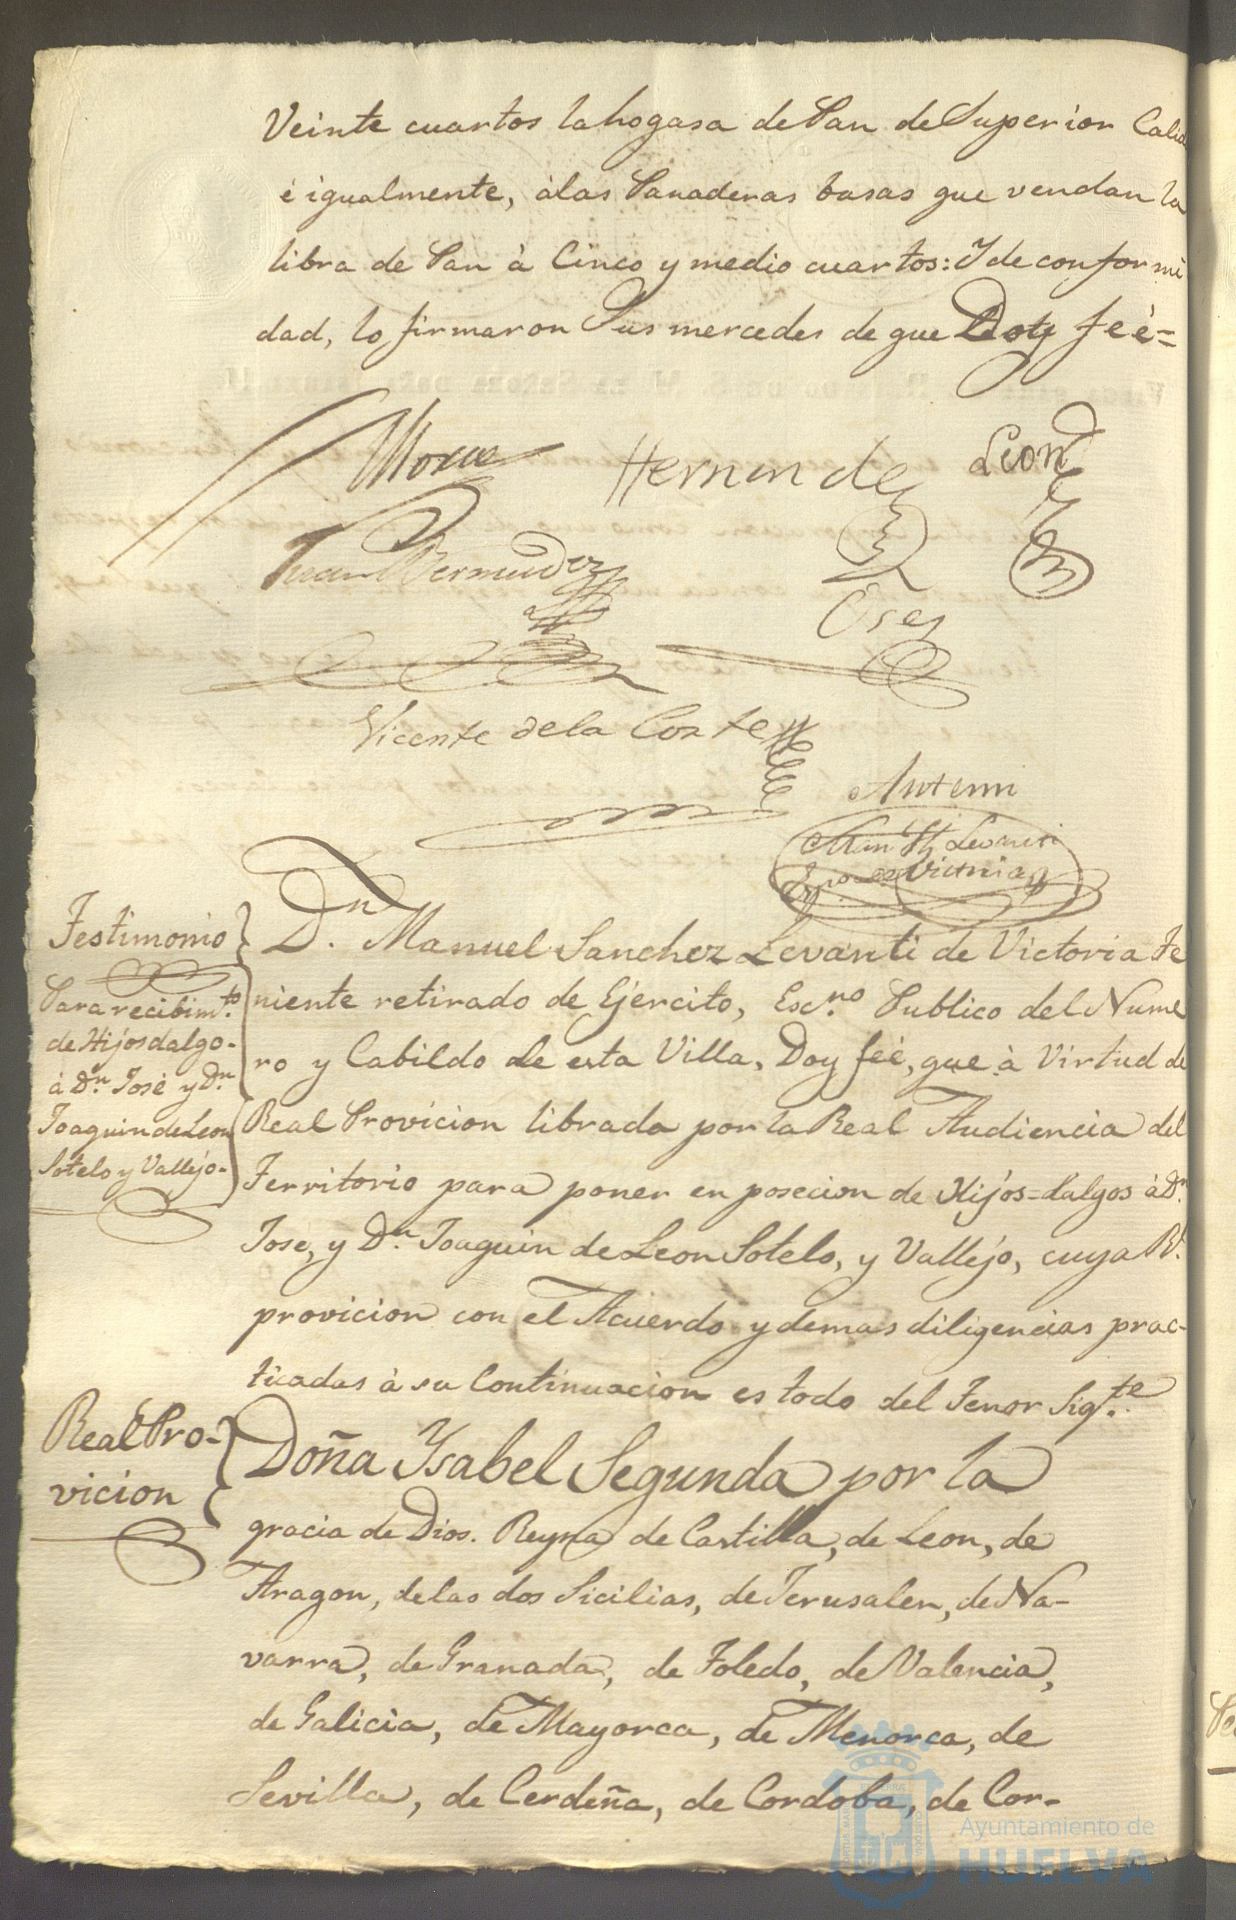 Veinte cuartos la hogasa de Pan de Superior Calid
é igualmente, à las Panaderas basas que vendan la
libra de Pan à Cinco y medio cuartos: Y de conformi
dad, lo firmaron Sus mercedes de que Doy feé=
Hernnde
Leon
Juan Bermudez
Oses
Vicente de la Corte
Antemi
Victoria
Testimonio
Para recibim.to
de Hijosdalgo-
à Dn. José y Dn.
Joaquin de Leon
Sotelo y Vallejo-
Dn. Manuel Sanchez Levanti de Victoria Te
niente retirado de Ejercito, Esc.no Publico del Nume
ro y Cabildo de esta Villa, Doy feé, que à Virtud de
Real Provicion librada por la Real Audiencia del
Territorio para poner en posecion de Hijos=dalgos à Dn.
Jose, y Dn. Joaquin de Leon Sotelo, y Vallejo, cuya Rl.
provicion con el Acuerdo y demas diligencias prac-
ticadas à su Continuacion es todo del Tenor Sig.te
Real Pro-
vicion
Doña Ysabel Segunda por la
gracia de Dios. Reyna de Castilla, de Leon, de
Aragon, de las dos Sicilias, de Jerusalen, de Na-
varra, de Granada, de Toledo, de Valencia,
de Galicia, de Mayorca, de Menorca, de
Sevilla, de Cerdeña, de Cordoba, de Cor-
Ayuntamiento de
HUELVA